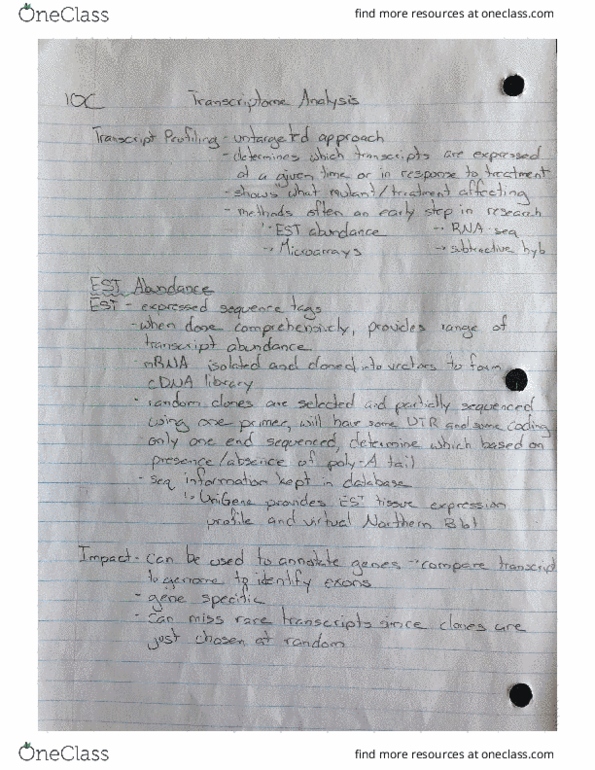 OneClass
find more resources at oneclass.com
10C Transcriptome Analysis
Transcript Profiling - untargeted approach
- determines which transcripts are expressed
at a given time or in response to treatment
- shows what mutant/treatment affecting
- methods often an early step in research
EST abundance RNA-seq
Microarrays subtractive hyb
EST Abundance
EST - expressed sequence tags
- when done comprehensively, provides range of
transcript abundance
- mRNA isolated and cloned into vectors to form
cDNA library
- random clones are selected and partially sequenced
using one primer, will have some UTR and some coding
only one end sequenced, determine which based on
presence/absence of poly-A tail
- seq information kept in database
UniGene provides EST tissue expression
profile and virtual Northern Blot
Impact - can be used to annotate genes compare transcript
to genome to identify exons
- gene specific
- can miss rare transcripts since clones are
just chosen at random
OneClass
find more resources at oneclass.com